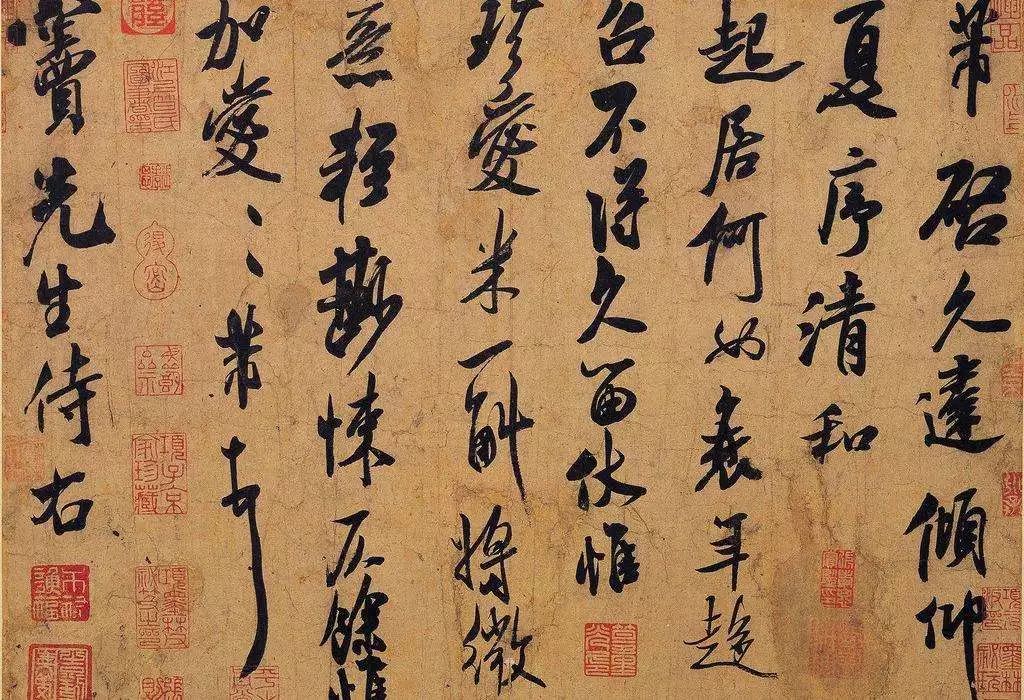 芾啓久違傾仰
夏序清和
起居何如衰年趨
召不得久留伏惟
珍愛米一斛將微
意輕尠悚仄餘惟
加愛〻〻芾頓首
竇先生侍右
項子京家珍藏